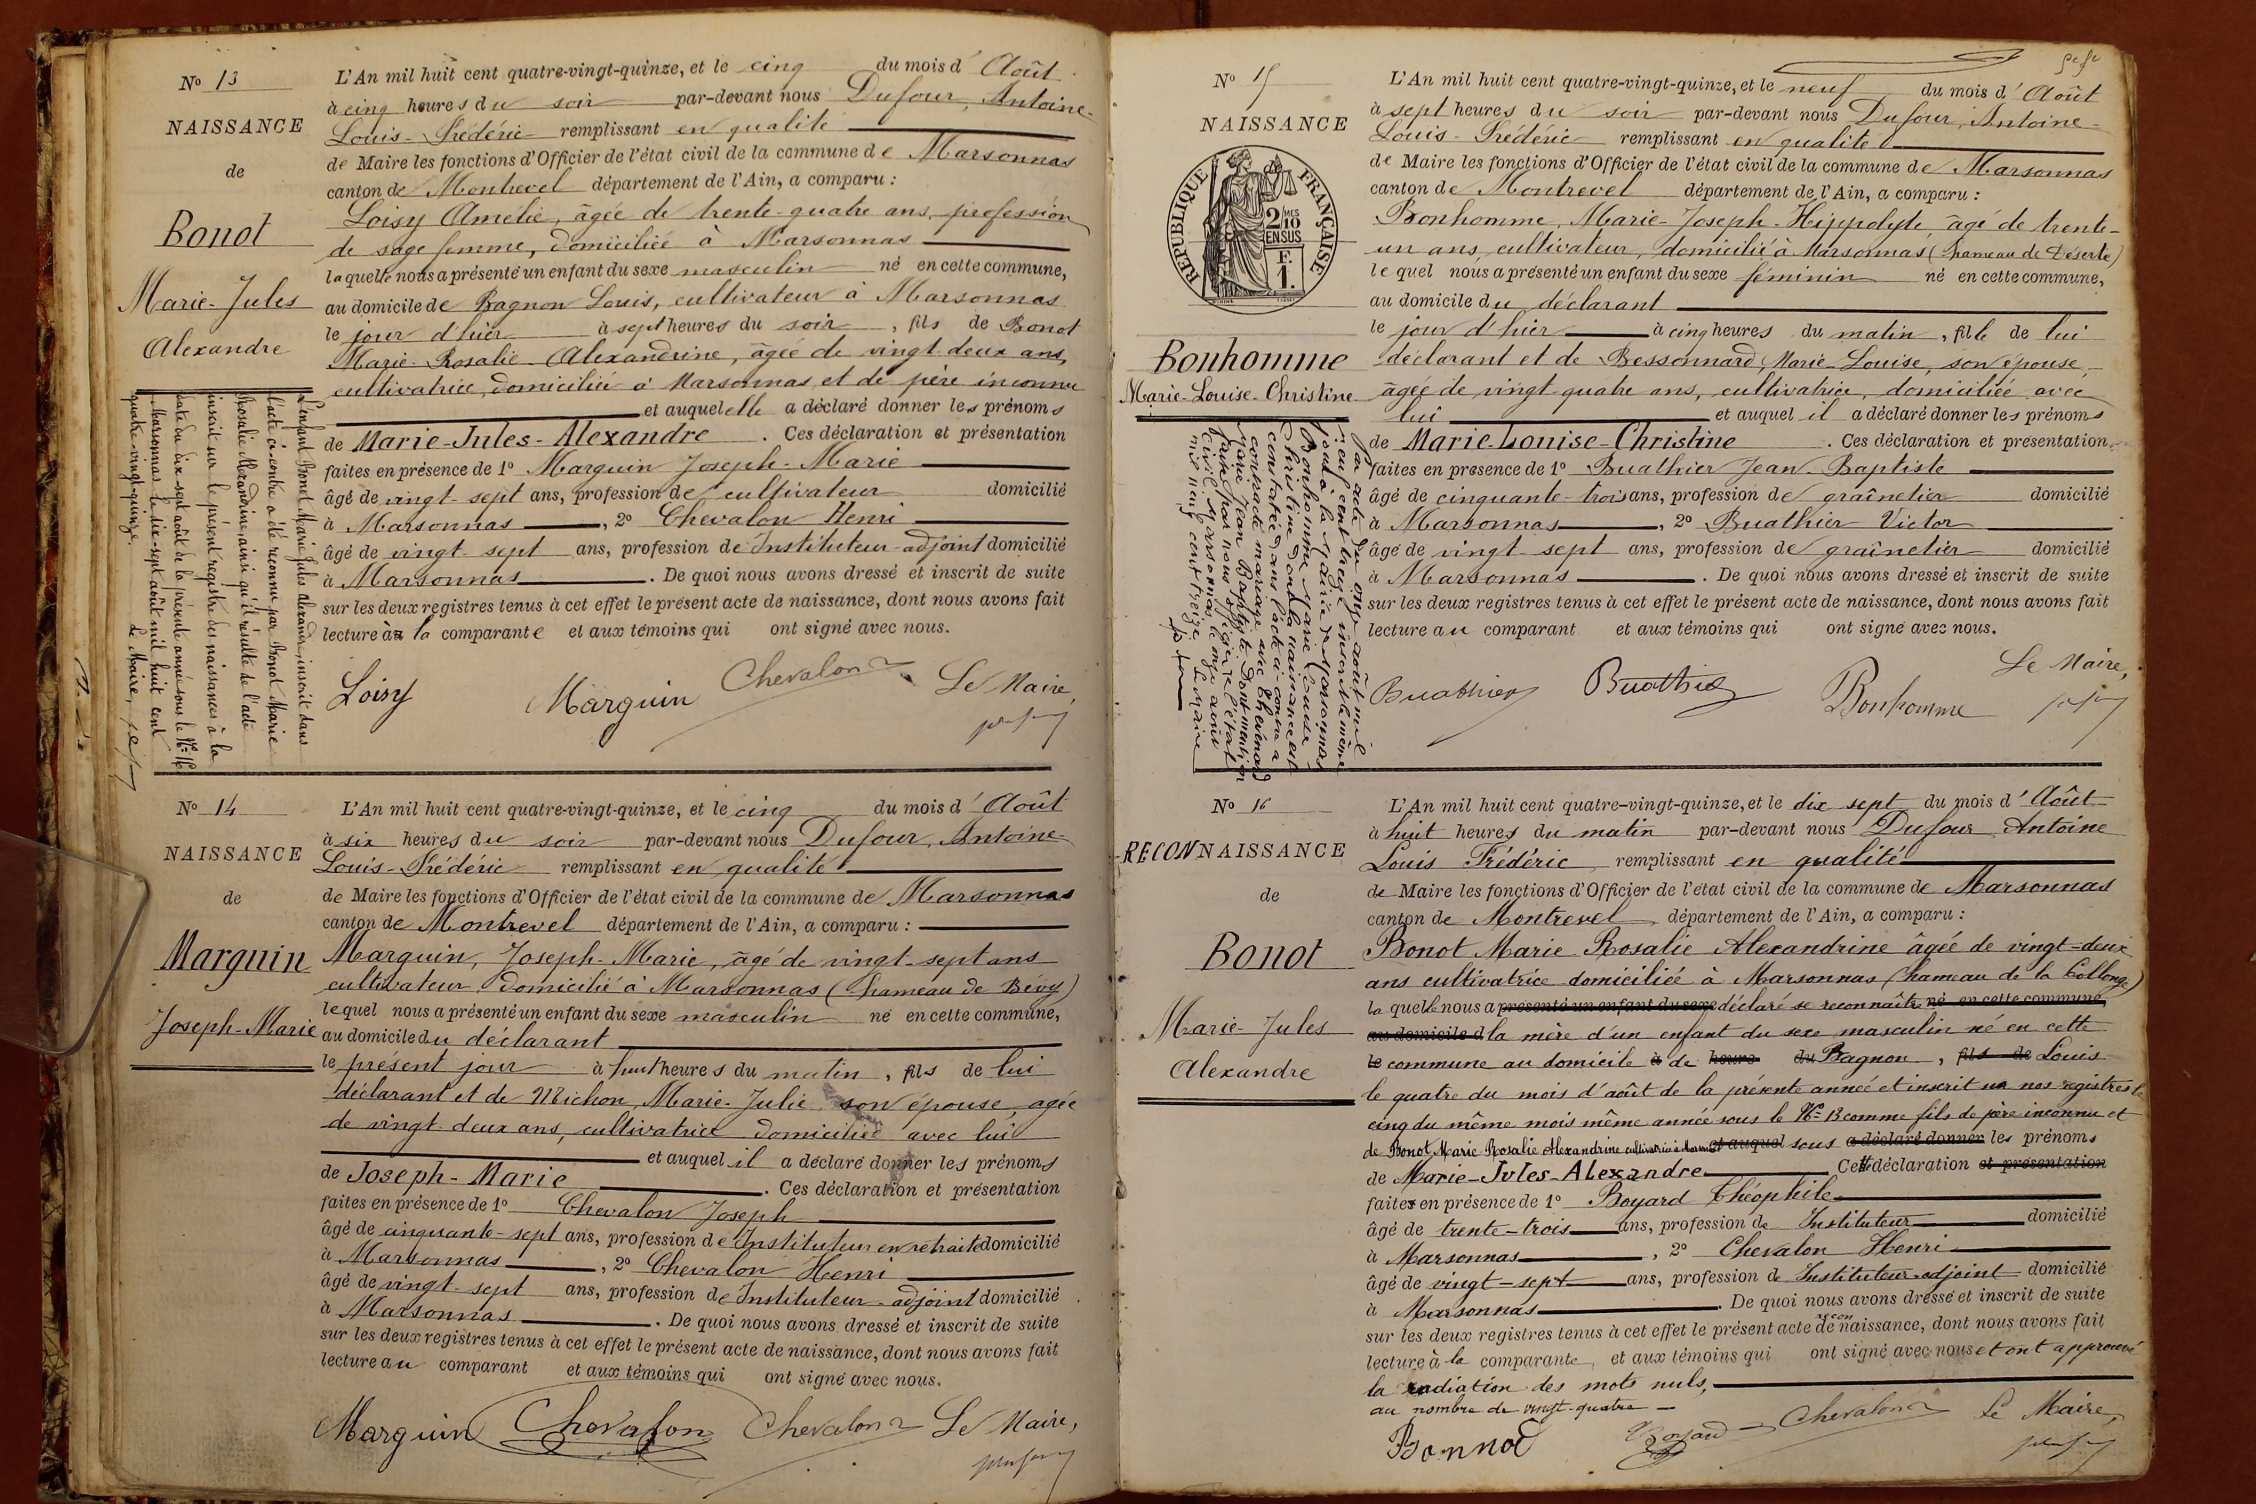 Nº 13
NAISSANCE
de
Bonot
Marie-Jules
Alexandre
L'An mil huit cent quatre-vingt-quinze, et le cinq du mois d'Août
à cinq heures du soir par-devant nous Dufour, Antoine-
Louis-Frédéric remplissant en qualité
de Maire les fonctions d'Officier de l'état civil de la commune de Marsonnas
canton de Montrevel département de l'Ain, a comparu :
Loisy Amélie, âgée de trente-quatre ans, profession
de sage femme, domiciliée à Marsonnas
laquelle nous a présenté un enfant du sexe masculin né en cette commune,
au domicile de Bagnon Louis, cultivateur à Marsonnas
le jour d'hier à sept heures du soir, fils de Bonot
Marie-Rosalie-Alexandrine, âgée de vingt-deux ans,
cultivatrice, domiciliée à Marsonnas et de père inconnu
et auquel elle a déclaré donner les prénoms
de Marie-Jules-Alexandre. Ces déclaration et présentation
faites en présence de 1º Marguin Joseph-Marie
âgé de vingt-sept ans, profession de cultivateur domicilié
à Marsonnas, 2º Chevalon Henri
âgé de vingt-sept ans, profession de Instituteur-adjoint domicilié
à Marsonnas. De quoi nous avons dressé et inscrit de suite
sur les deux registres tenus à cet effet le présent acte de naissance, dont nous avons fait
lecture à la comparante et aux témoins qui ont signé avec nous.
Loisy Marguin Chevalon Le Maire,
L'enfant Bonot Marie Jules Alexandre, inscrit dans
l'acte ci-contre a été reconnu par Bonot Marie
Rosalie Alexandrine, ainsi qu'il résulte de l'acte
inscrit sur le présent registre des naissances à la
date du dix-sept août de la présente année sous le Nº 16
Marsonnas, le dix-sept août mil huit cent
quatre-vingt-quinze. Le Maire,
Nº 14
NAISSANCE
de
Marguin
Joseph-Marie
L'An mil huit cent quatre-vingt-quinze, et le cinq du mois d'Août
à six heures du soir par-devant nous Dufour, Antoine-
Louis-Frédéric remplissant en qualité
de Maire les fonctions d'Officier de l'état civil de la commune de Marsonnas
canton de Montrevel département de l'Ain, a comparu :
Marguin, Joseph-Marie, âgé de vingt-sept ans
cultivateur, domicilié à Marsonnas (hameau de Bévy)
lequel nous a présenté un enfant du sexe masculin né en cette commune,
au domicile du déclarant
le présent jour à huit heures du matin, fils de lui
déclarant et de Michon, Marie-Julie son épouse, agée
de vingt-deux ans, cultivatrice domiciliée avec lui
et auquel il a déclaré donner les prénoms
de Joseph-Marie. Ces déclaration et présentation
faites en présence de 1º Chevalon Joseph
âgé de cinquante-sept ans, profession de Instituteur en retraite domicilié
à Marsonnas, 2º Chevalon Henri
âgé de vingt-sept ans, profession de Instituteur-adjoint domicilié
à Marsonnas. De quoi nous avons dressé et inscrit de suite
sur les deux registres tenus à cet effet le présent acte de naissance, dont nous avons fait
lecture au comparant et aux témoins qui ont signé avec nous.
Marguin Chevalon Chevalon Le Maire,
Nº 15
NAISSANCE
RÉPUBLIQUE FRANÇAISE
2 MES
10
EN SUS
F.
1.
Bonhomme
Marie-Louise-Christine
L'An mil huit cent quatre-vingt-quinze, et le neuf du mois d'Août
à sept heures du soir par-devant nous Dufour, Antoine-
Louis-Frédéric remplissant en qualité
de Maire les fonctions d'Officier de l'état civil de la commune de Marsonnas
canton de Montrevel département de l'Ain, a comparu :
Bonhomme, Marie-Joseph-Hippolyte, âgé de trente-
un ans, cultivateur, domicilié à Marsonnas (hameau de Déserte)
lequel nous a présenté un enfant du sexe féminin né en cette commune,
au domicile du déclarant
le jour d'hier à cinq heures du matin, fille de lui
déclarant et de Bessonnard, Marie-Louise, son épouse,
âgée de vingt-quatre ans, cultivatrice, domiciliée avec
lui et auquel il a déclaré donner les prénoms
de Marie-Louise-Christine. Ces déclaration et présentation
faites en présence de 1º Buathier Jean-Baptiste
âgé de cinquante-trois ans, profession de graînetier domicilié
à Marsonnas, 2º Buathier Victor
âgé de vingt-sept ans, profession de graînetier domicilié
à Marsonnas. De quoi nous avons dressé et inscrit de suite
sur les deux registres tenus à cet effet le présent acte de naissance, dont nous avons fait
lecture au comparant et aux témoins qui ont signé avec nous.
Buathier Buathier Bonhomme Le Maire,
Par acte du onze août mil
neuf cent treize inscrit le même
jour à la Mairie de Marsonnas
Bonhomme Marie Louise
Christine dont la naissance est
constatée dans l'acte ci-contre a
contracté mariage avec Thévenard
Marie Jean Baptiste. Dont mention
faite par nous Officier de l'état
civil à Marsonnas, le onze août
mil neuf cent treize. Le Maire
Nº 16
RECONNAISSANCE
de
Bonot
Marie-Jules
Alexandre
L'An mil huit cent quatre-vingt-quinze, et le dix sept du mois d'Août
à huit heures du matin par-devant nous Dufour Antoine
Louis Frédéric remplissant en qualité
de Maire les fonctions d'Officier de l'état civil de la commune de Marsonnas
canton de Montrevel département de l'Ain, a comparu :
Bonot Marie Rosalie Alexandrine âgée de vingt-deux
ans cultivatrice domiciliée à Marsonnas (hameau de la Collonge)
laquelle nous a présenté un enfant du sexe déclaré se reconnaître né en cette commune
au domicile d la mère d'un enfant du sexe masculin né en cette
le commune au domicile à de heure du Bagnon, fils de Louis
le quatre du mois d'août de la présente année et inscrit sur nos registres le
cinq du même mois même année sous le Nº 13 comme fils de père inconnu et
de Bonot Marie Rosalie Alexandrine cultivatrice à Marsonnas et auquel sous a déclaré donner les prénoms
de Marie-Jules-Alexandre Cette déclaration et présentation
faites en présence de 1º Boyard Théophile
âgé de trente-trois ans, profession de Instituteur domicilié
à Marsonnas, 2º Chevalon Henri
âgé de vingt-sept ans, profession de Instituteur-adjoint domicilié
à Marsonnas. De quoi nous avons dressé et inscrit de suite
sur les deux registres tenus à cet effet le présent acte de reconnaissance, dont nous avons fait
lecture à la comparante, et aux témoins qui ont signé avec nous et ont approuvé
la radiation des mots nuls,
au nombre de vingt-quatre
Bonnot Boyard Chevalon Le Maire,